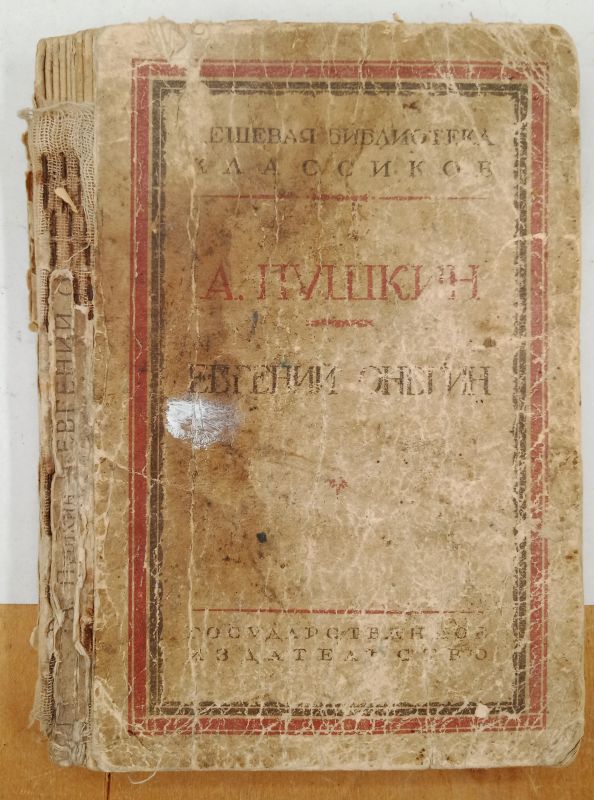 ДЕШЕВАЯ БИБЛИОТЕКА
КЛАССИКОВ
А. ПУШКИН
ЕВГЕНИЙ ОНЕГИН
ГОСУДАРСТВЕННОЕ
ИЗДАТЕЛЬСТВО
ЕВГЕНИЙ